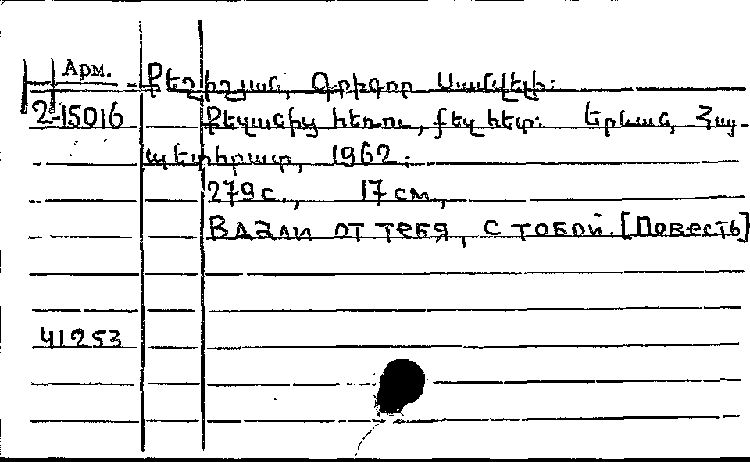 Арм.
2-15016
Քեշիշյան, Գրիգոր Սամվելի:
Քեզանից հեռու, քեզ հետ: Երևան, Հայ-
պետհրատ, 1962.
279 с., 17 см,
Вдали от тебя, с тобой. [Повесть]
41253